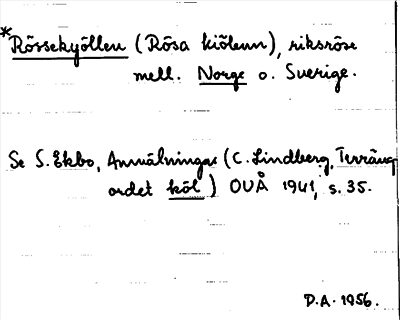 *Rössekyöllen (Rösa kiölenn), riksröse
mell. Norge o. Sverige.
Se S. Ekbo, Anmälningar (C. Lindberg, Terräng
ordet köl) OUÅ 1941, s. 35.
D.A. 1956.